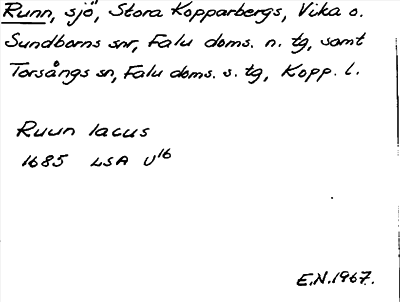 Runn, sjö, Stora Kopparbergs, Vika o.
Sundborns snr, Falu doms. n. tg, samt
Torsångs sn, Falu doms. s. tg, Kopp. l.
Ruun lacus
1685 LSA U16
E.N. 1967.